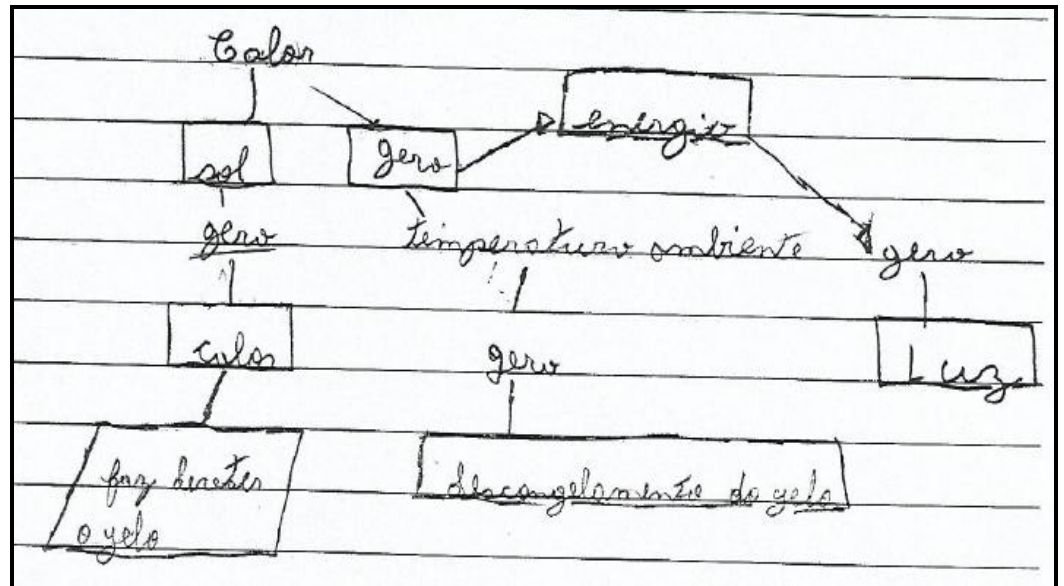 Calor
energia
sol
gera
gera
temperatura ambiente
gera
calor
gera
Luz
faz dereter
o gelo
descongelamento do gelo